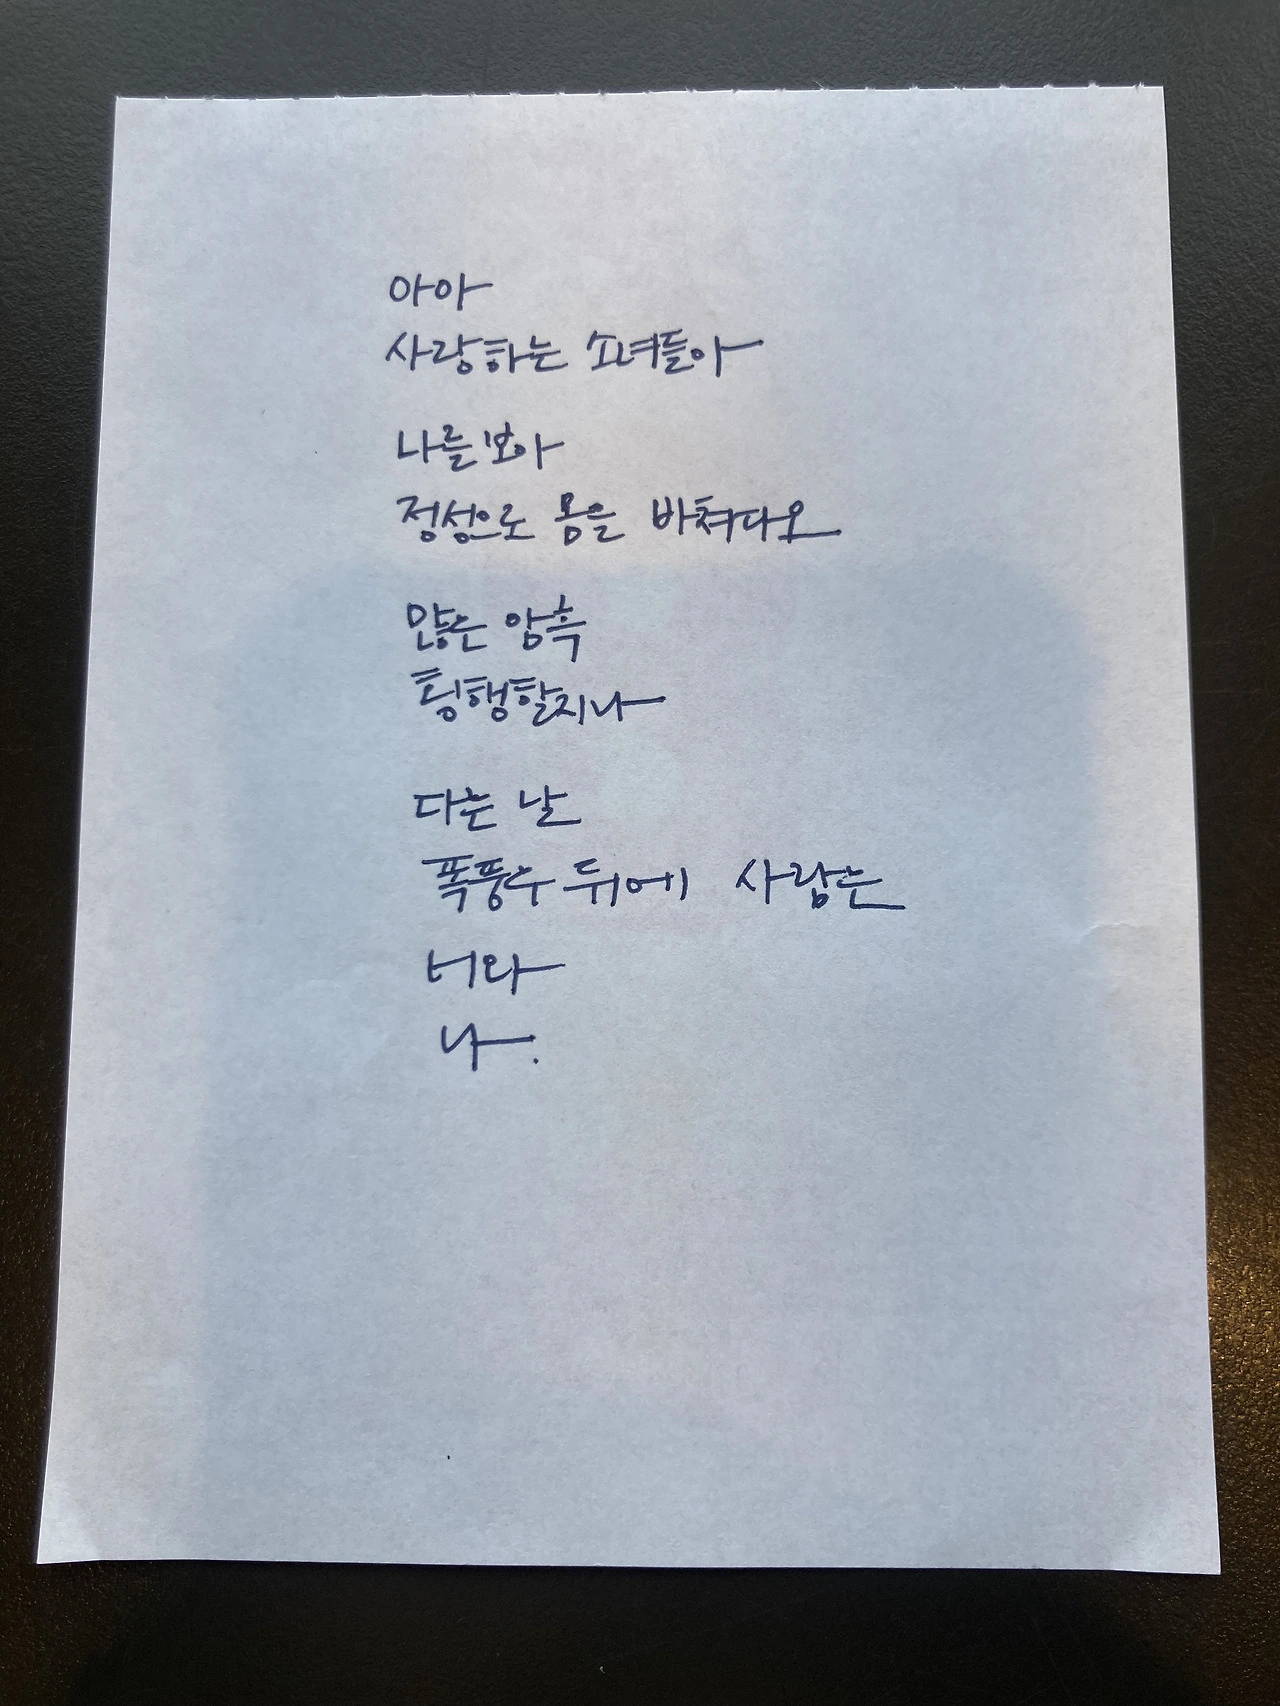 아아
사랑하는 소녀들아
나를 보아
정성으로 몸을 바쳐다오
많은 암흑
횡행할지나
다른 날
폭풍우 뒤에 사람은
너와
나.